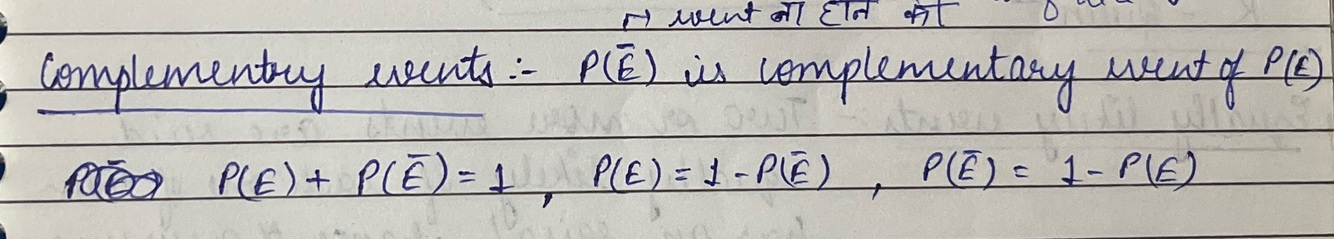 → event ना होने की
Complementry events :- P(Ē) is complementary event of P(E)
P(E) + P(Ē) = 1 , P(E) = 1 - P(Ē) , P(Ē) = 1 - P(E)